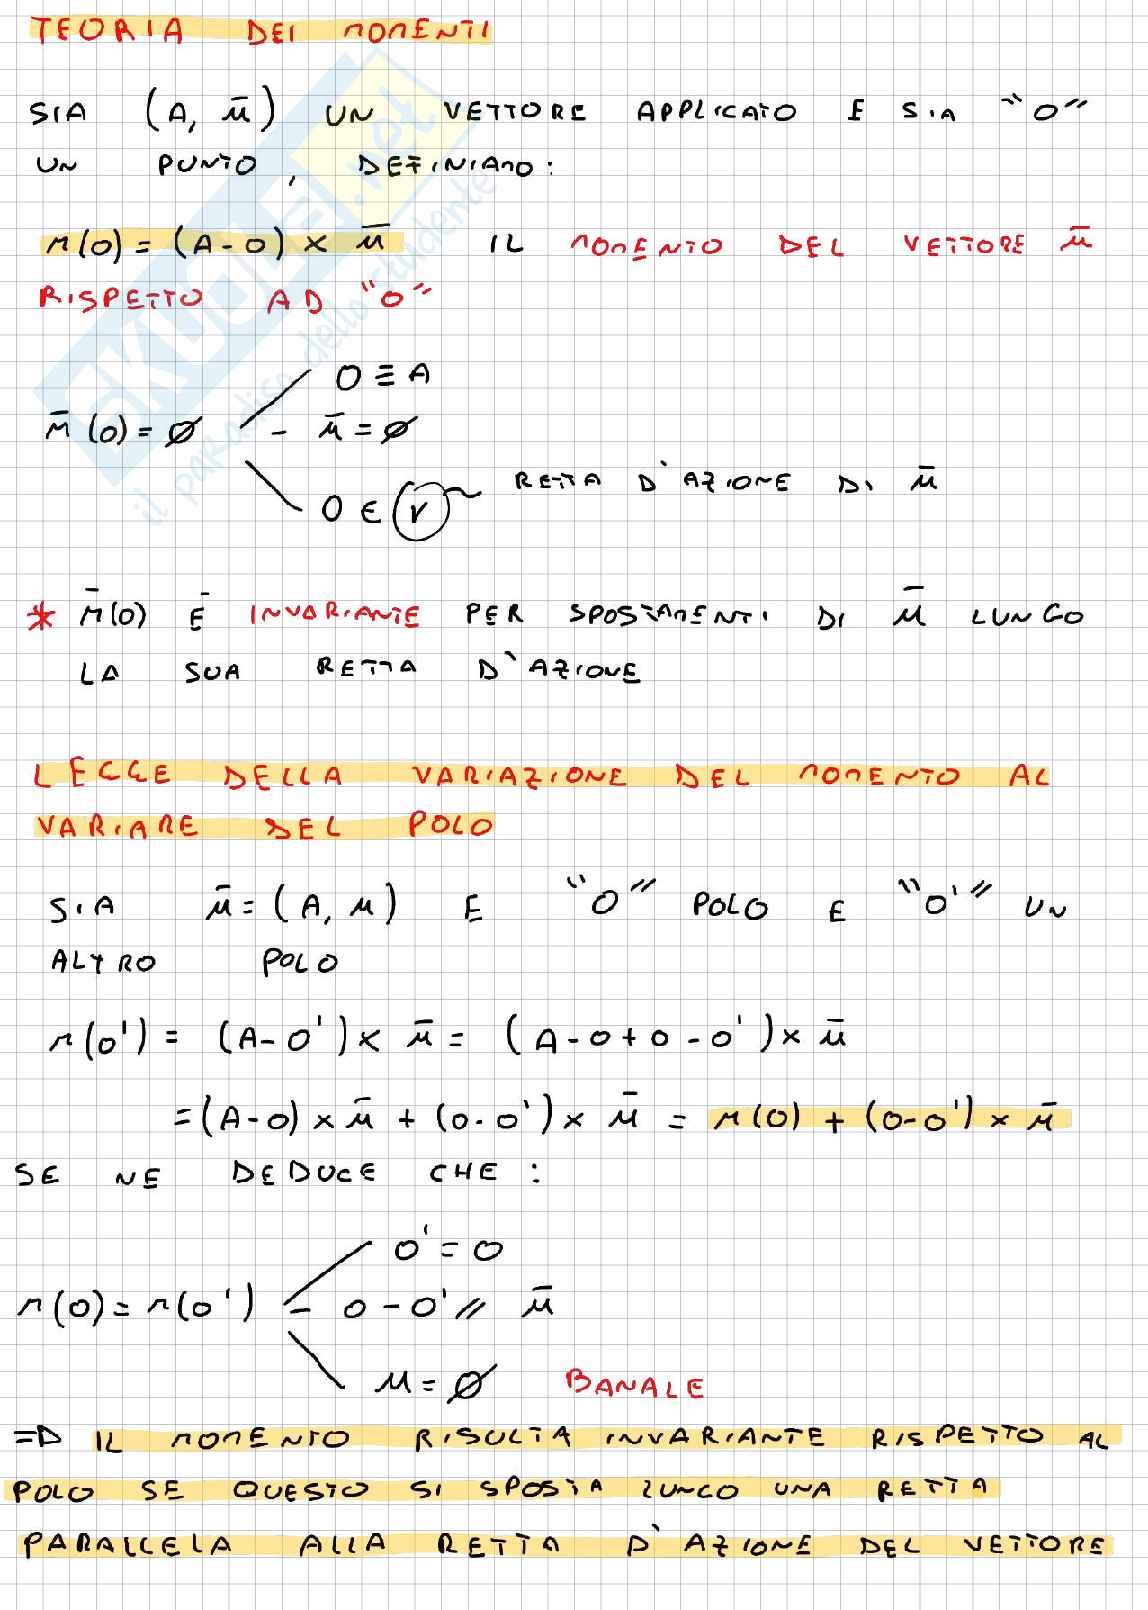 TEORIA DEI MOMENTI
SIA (A, ū) UN VETTORE APPLICATO E SIA "O"
UN PUNTO, DEFINIAMO:
M(O) = (A-O) × ū IL MOMENTO DEL VETTORE ū
RISPETTO AD "O"
O ≡ A
M̄(O) = ∅ - ū = ∅
O ∈ r RETTA D'AZIONE DI ū
* M̄(O) È INVARIANTE PER SPOSTAMENTI DI ū LUNGO
LA SUA RETTA D'AZIONE
LEGGE DELLA VARIAZIONE DEL MOMENTO AL
VARIARE DEL POLO
SIA ū = (A, u) E "O" POLO E "O'" UN
ALTRO POLO
M(O') = (A-O') × ū = (A-O+O-O') × ū
= (A-O) × ū + (O-O') × ū = M(O) + (O-O') × ū
SE NE DEDUCE CHE:
O' = O
M(O) = M(O') - O-O' // ū
u = ∅ BANALE
=D IL MOMENTO RISULTA INVARIANTE RISPETTO AL
POLO SE QUESTO SI SPOSTA LUNGO UNA RETTA
PARALLELA ALLA RETTA D'AZIONE DEL VETTORE
SKUOLA.net
il paradiso dello studente